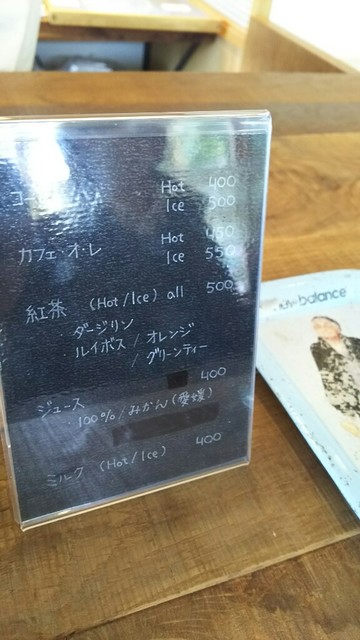 コーヒー Hot 400
Ice 500
カフェ・オ・レ Hot 450
Ice 550
紅茶 (Hot/Ice) all 500
ダージリン
ルイボス / オレンジ
/ グリーンティー
ジュース 400
100% / みかん (愛媛)
ミルク (Hot/Ice) 400
balance